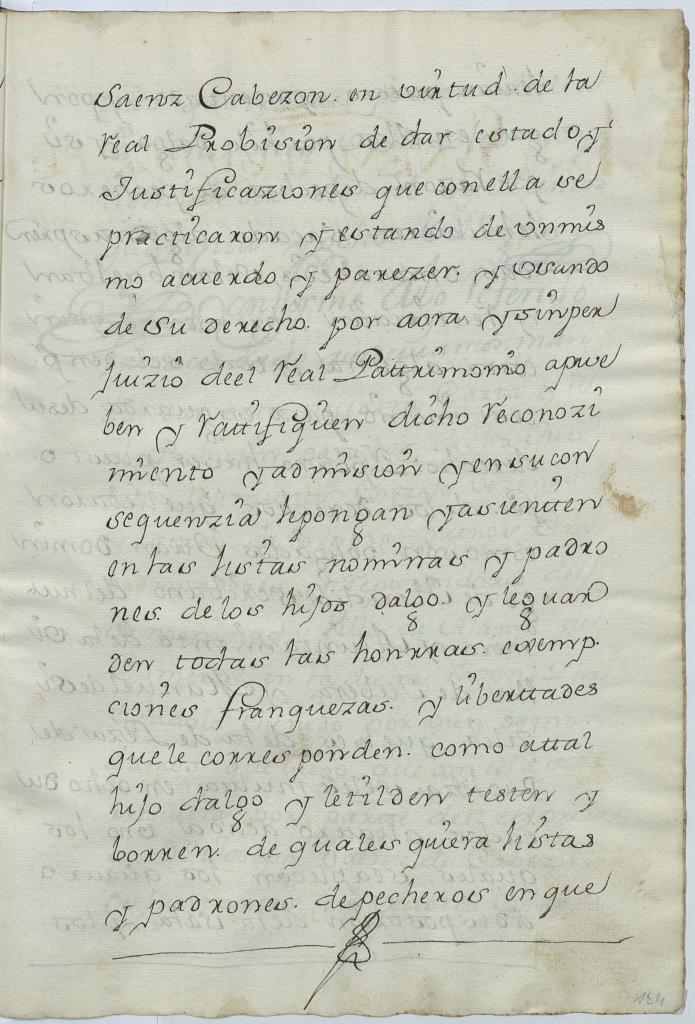 Saenz Cabezon. en virtud. de la
real Probision de dar estado y
Justificaziones que con ella se
practicaron y estando de un mis
mo acuerdo y parezer. y usando
de su derecho. por aora y sin per
juizio de el real Pattrimonio aprue
ben y rattifiquen dicho reconozi
miento y admision y en su con
sequenzia le pongan y asientten
en las listas nominas y padro
nes. de los hijos dalgo. y le guar
den todas las honrras. exemp.
ciones franquezas. y liberttades
que le corresponden. como attal
hijo dalgo y le tilden testen y
borren. de quales quiera listas
y padrones. de pecheros en que
154